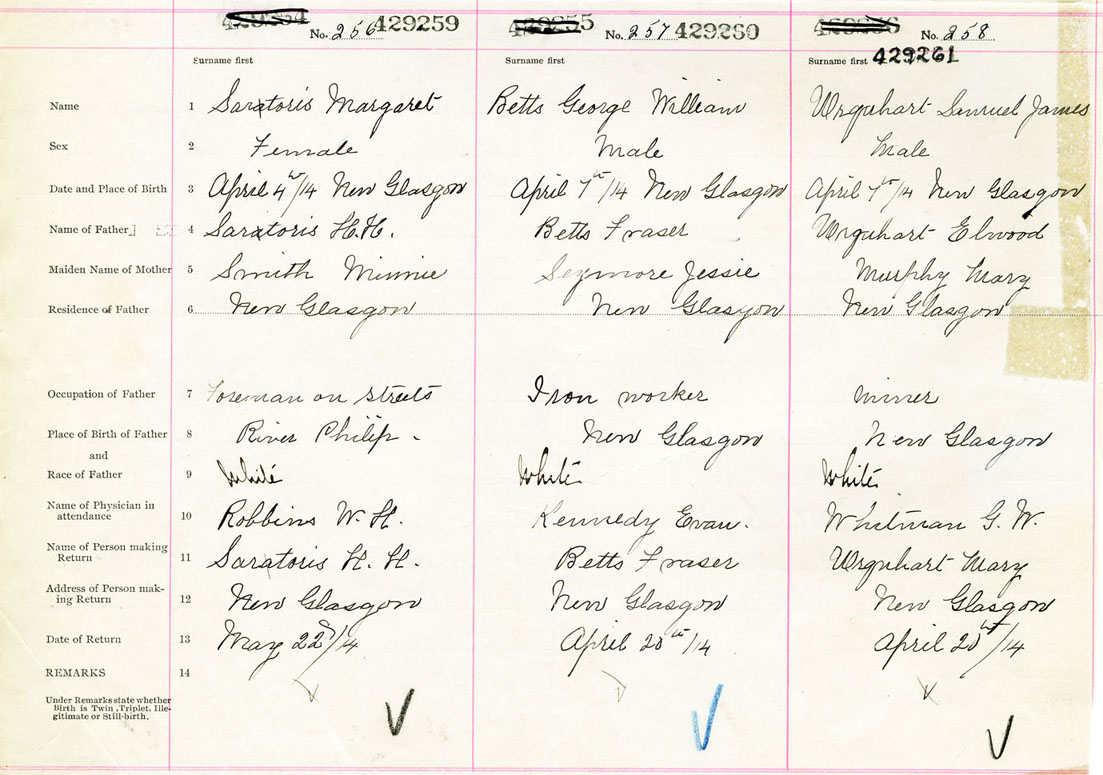 No. 256 429259 No. 257 429260 No. 258
Surname first Surname first Surname first 429261
Name 1 Saratoris Margaret Betts George William Urquhart Samuel James
Sex 2 Female Male Male
Date and Place of Birth 3 April 4th/14 New Glasgow April 7th/14 New Glasgow April 7th/14 New Glasgow
Name of Father 4 Saratoris H.H. Betts Fraser Urquhart Elwood
Maiden Name of Mother 5 Smith Minnie Seymore Jessie Murphy Mary
Residence of Father 6 New Glasgow New Glasgow New Glasgow
Occupation of Father 7 Foreman on streets Iron worker miner
Place of Birth of Father 8 River Philip. New Glasgow New Glasgow
and
Race of Father 9 White White White
Name of Physician in
attendance 10 Robbins W. H. Kennedy Evan. Whitman G. W.
Name of Person making
Return 11 Saratoris H. H. Betts Fraser Urquhart Mary
Address of Person mak-
ing Return 12 New Glasgow New Glasgow New Glasgow
Date of Return 13 May 22d/14 April 20th/14 April 20th/14
REMARKS 14
Under Remarks state whether
Birth is Twin, Triplet, Ille-
gitimate or Still-birth.